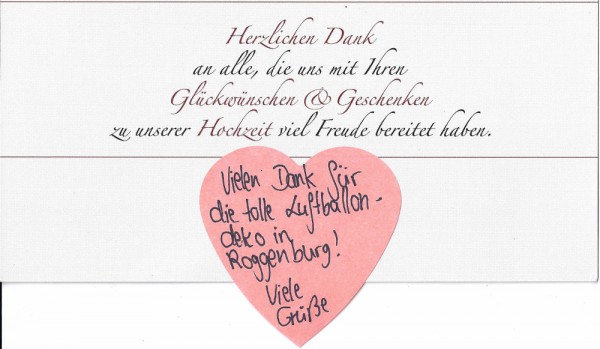 Herzlichen Dank
an alle, die uns mit Ihren
Glückwünschen & Geschenken
zu unserer Hochzeit viel Freude bereitet haben.
Vielen Dank für
die tolle Luftballon-
deko in
Roggenburg!
Viele
Grüße